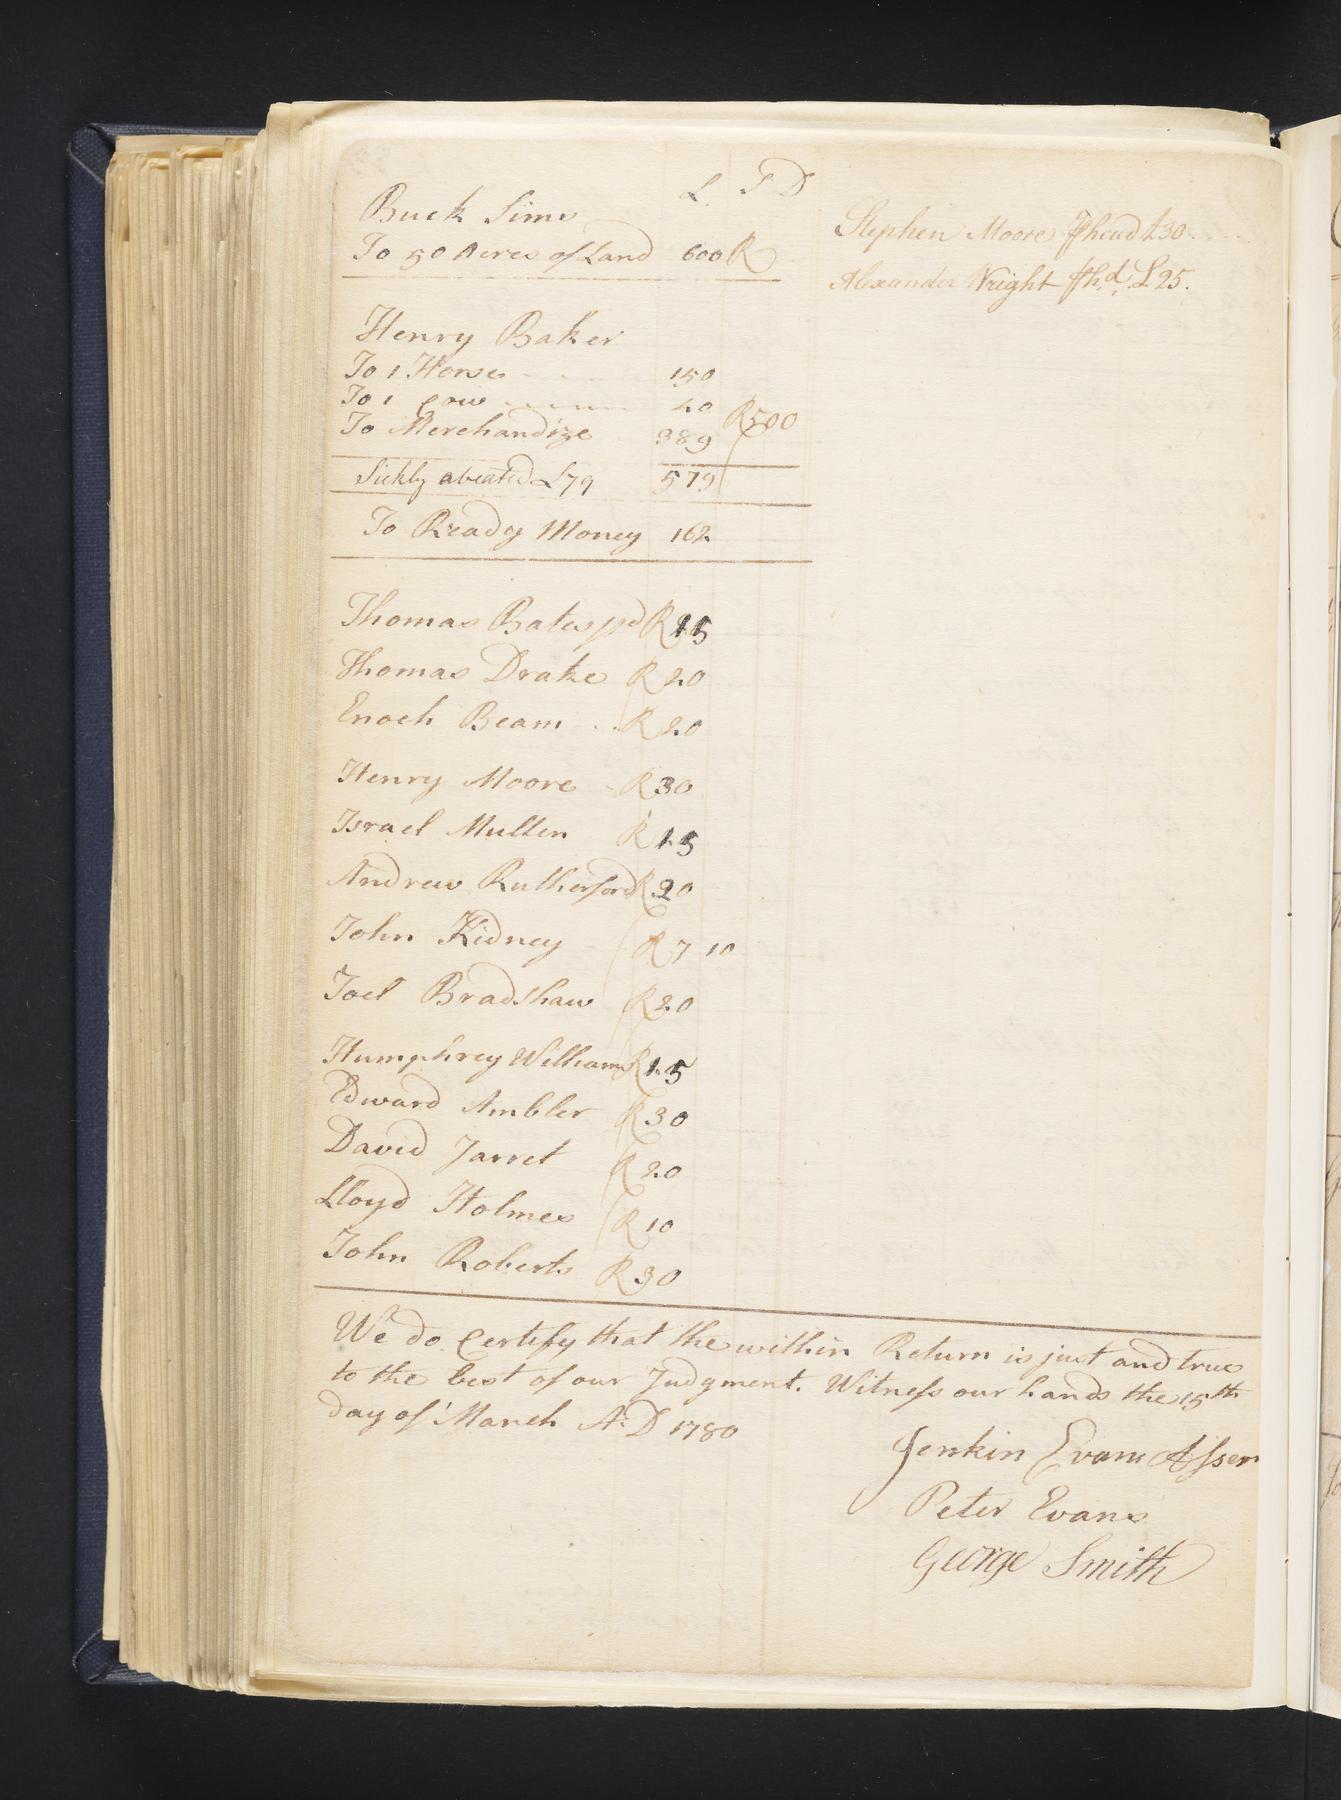 L. S D
Buck Sims
To 50 Acres of Land 600 R
Henry Baker
To 1 Horse 150
To 1 Cow 40
To Merchandize 389 R500
Sickly abeated £79 579
To Ready Money 162
Thomas Bates pd R 15
Thomas Drake R 20
Enoch Beam R 20
Henry Moore R 30
Israel Mullen R 15
Andrew Rutherford R 20
John Kidney R 7 10
Joel Bradshaw R 20
Humphrey William R 15
Edward Ambler R 30
David Jarret R 20
Lloyd Holmes R 10
John Roberts R 30
Stephen Moore head £30
Alexander Wright hd. £25.
We do Certify that the within Return is just and true
to the best of our Judgment. Witness our hands the 15th
day of March A.D 1780
Jenkin Evans Asser
Peter Evans
George Smith